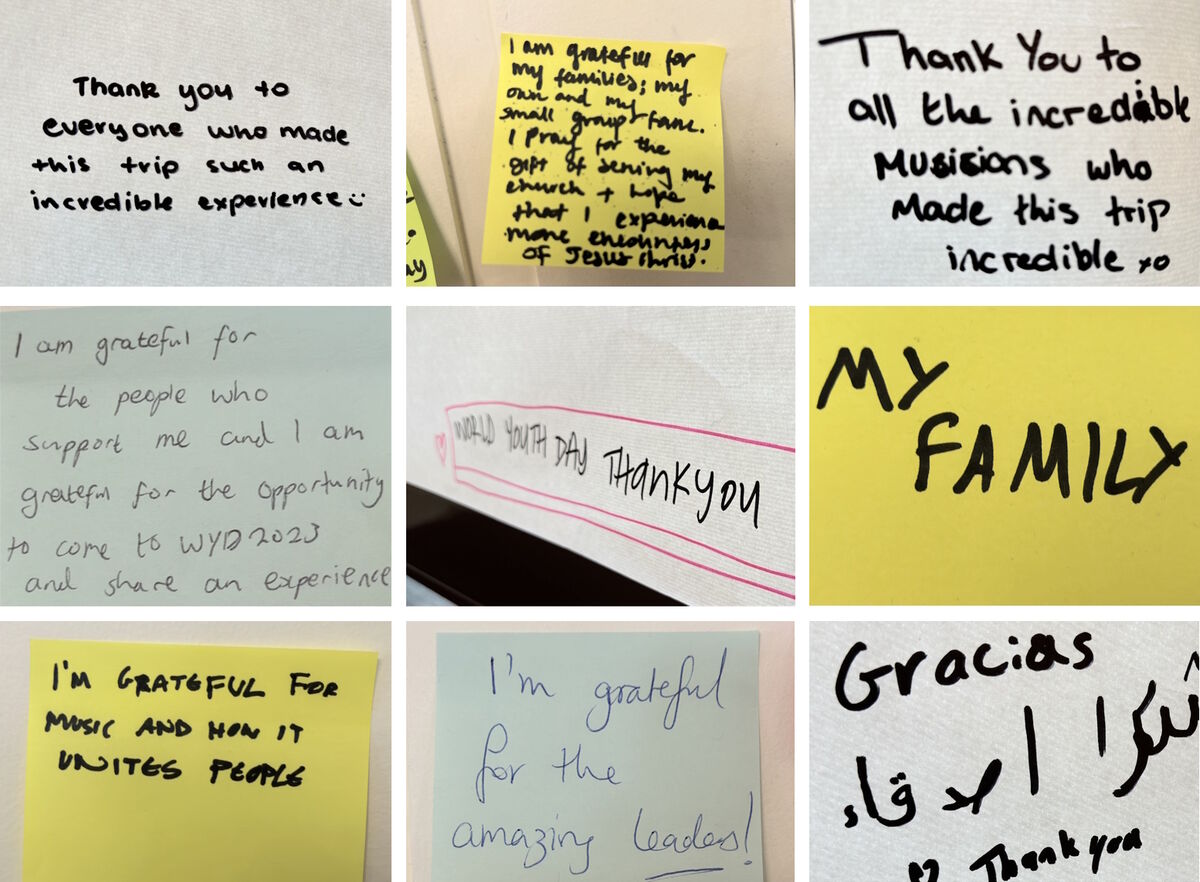 Thank you to
everyone who made
this trip such an
incredible experience :)
I am grateful for
my families; my
own and my
small group fam.
I pray for the
gift of serving my
church + hope
that I experience
more encounters
of Jesus Christ.
ay
Thank You to
all the incredible
Musicians who
Made this trip
incredible xo
I am grateful for
the people who
support me and I am
grateful for the opportunity
to come to WYD 2023
and share an experience
WORLD YOUTH DAY THANKYOU
MY
FAMILY
I'M GRATEFUL FOR
MUSIC AND HOW IT
UNITES PEOPLE
I'm grateful
for the
amazing leaders!
Gracias
شكرا اصدقاء
Thank you